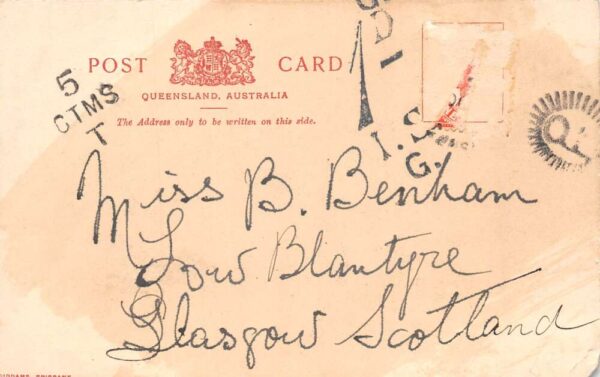 POST CARD
QUEENSLAND, AUSTRALIA
The Address only to be written on this side.
5
CTMS
T
I.S.
G.
Miss B. Benham
Low Blantyre
Glasgow Scotland